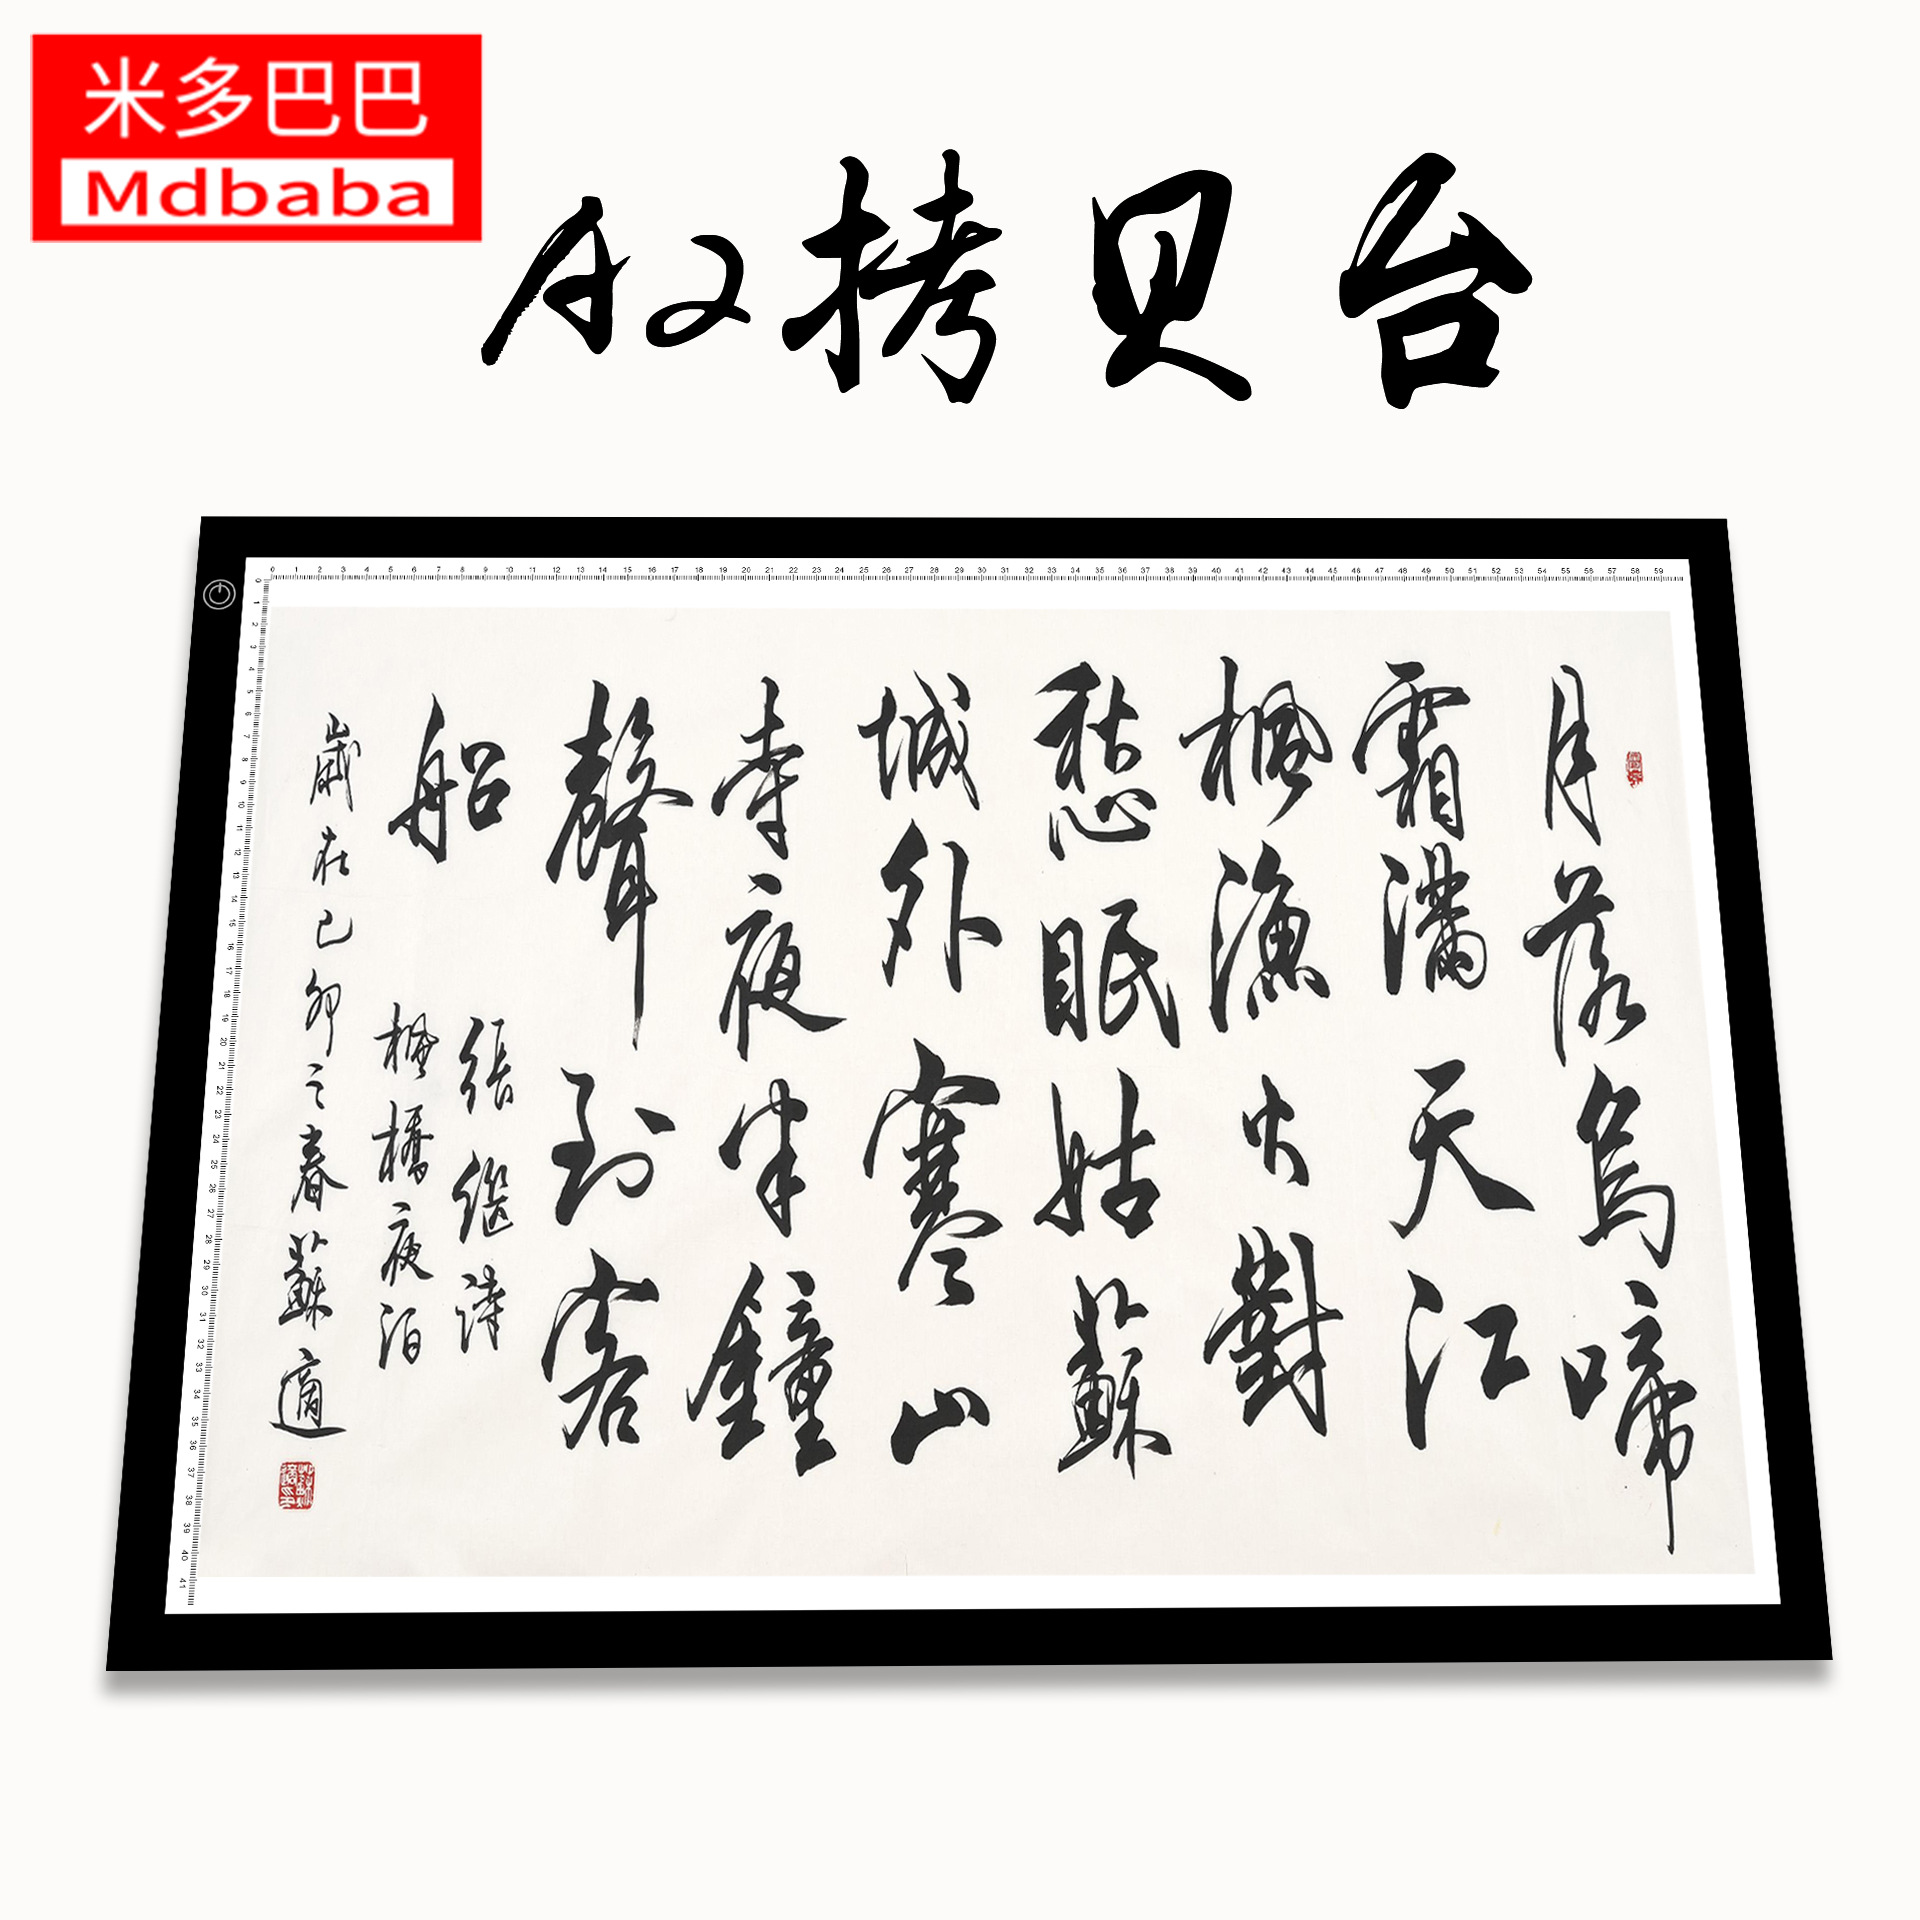 米多巴巴
Mdbaba
A2拷贝台
0 1 2 3 4 5 6 7 8 9 10 11 12 13 14 15 16 17 18 19 20 21 22 23 24 25 26 27 28 29 30 31 32 33 34 35 36 37 38 39 40 41 42 43 44 45 46 47 48 49 50 51 52 53 54 55 56 57 58 59
0 1 2 3 4 5 6 7 8 9 10 11 12 13 14 15 16 17 18 19 20 21 22 23 24 25 26 27 28 29 30 31 32 33 34 35 36 37 38 39 40 41
月落烏啼
霜滿天江
楓漁火對
愁眠姑蘇
城外寒山
寺夜半鐘
聲到客
船
張繼詩
楓橋夜泊
歲在己卯之春蘇適